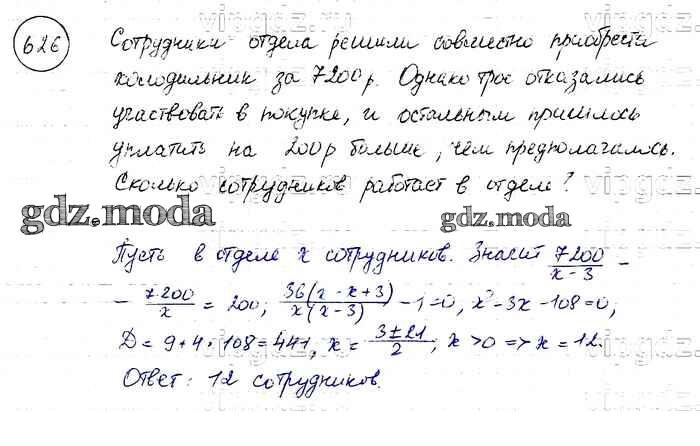 626
Сотрудники отдела решили совместно приобрести
холодильник за 7200р. Однако трое отказались
участвовать в покупке, и остальным пришлось
уплатить на 200р больше, чем предполагалось.
Сколько сотрудников работает в отделе?
gdz.moda gdz.moda
Пусть в отделе x сотрудников. Значит 7200/(x-3) -
- 7200/x = 200; 36(x-x+3)/(x(x-3)) - 1=0, x²-3x-108=0;
D = 9+4·108=441, x = (3±21)/2; x>0 => x=12.
Ответ: 12 сотрудников.